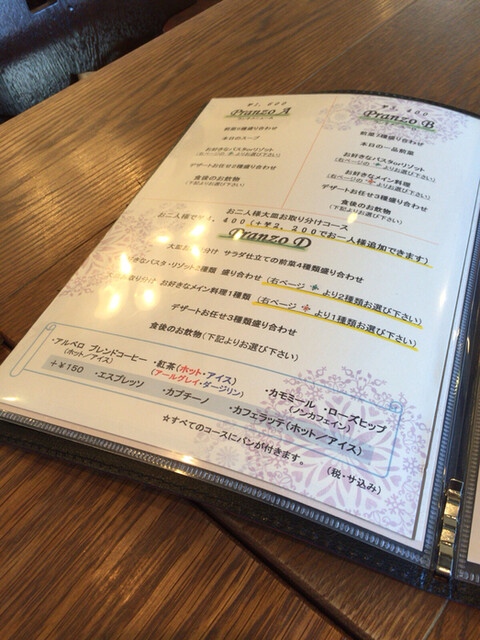 Pranzo A
本日のスープ
お好きなパスタorリゾット
デザートお任せ2種盛り合わせ
食後のお飲物
(下記よりお選び下さい)
Pranzo B
前菜3種盛り合わせ
本日の一品前菜
お好きなパスタorリゾット
お好きなメイン料理
デザートお任せ3種盛り合わせ
食後のお飲物
(下記よりお選び下さい)
お二人様大皿お取り分けコース
400(+¥2, 200でお一人様追加できます)
Pranzo D
サラダ仕立ての前菜4種類盛り合わせ
きなパスタ・リゾット2種類 盛り合わせ(右ページ + より2種類お選び下さい)
お好きなメイン料理1種類 (右ページ + より1種類お選び下さい)
デザートお任せ3種類盛り合わせ
食後のお飲物(下記よりお選び下さい)
・アルベロ ブレンドコーヒー ・紅茶(ホット・アイス) ・カモミール ・ローズヒップ
(ホット/アイス) (アールグレイ・ダージリン) (ノンカフェイン)
+¥150 ・エスプレッソ ・カプチーノ ・カフェラッテ(ホット/アイス)
☆すべてのコースにパンが付きます。
(税・サ込み)